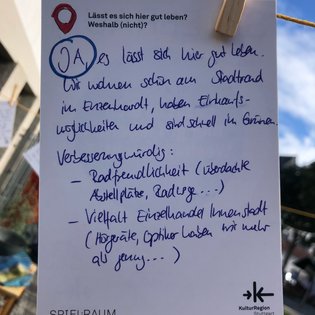 Lässt es sich hier gut leben?
Weshalb (nicht)?
JA, es lässt sich hier gut leben.
Wir wohnen schön am Stadtrand
in Enzenhardt, haben Einkaufs-
möglichkeiten und sind schnell im Grünen.
Verbesserungwürdig:
– Radfreundlichkeit (überdachte
Abstellplätze, Radwege...)
– Vielfalt Einzelhandel Innenstadt
(Hörgeräte, Optiker haben wir mehr
als genug...)
KulturRegion
Stuttgart
SPIEL:RAUM